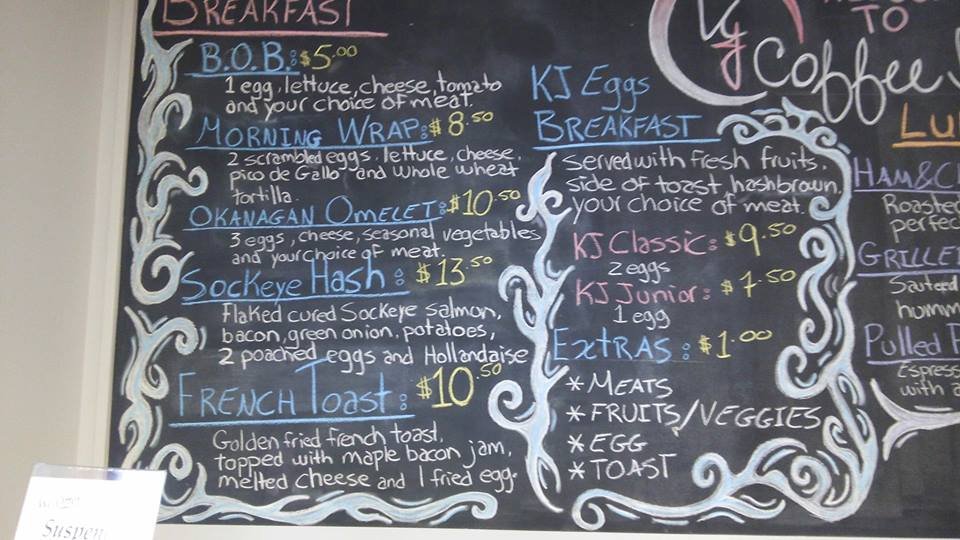 BREAKFAST
B.O.B.: $5.00
1 egg, lettuce, cheese, tomato
and your choice of meat.
MORNING WRAP: $8.50
2 scrambled eggs, lettuce, cheese,
pico de Gallo and whole wheat
tortilla.
OKANAGAN OMELET: $10.50
3 eggs, cheese, seasonal vegetables
and your choice of meat.
Sockeye Hash: $13.50
Flaked cured Sockeye salmon,
bacon, green onion, potatoes,
2 poached eggs and Hollandaise
FRENCH Toast: $10.50
Golden fried french toast,
topped with maple bacon jam,
melted cheese and 1 fried egg.
KJ Eggs
BREAKFAST
Served with fresh fruits,
side of toast, hashbrown,
your choice of meat.
KJ Classic: $9.50
2 eggs
KJ Junior: $7.50
1 egg
EXTRAS: $1.00
* MEATS
* FRUITS/VEGGIES
* EGG
* TOAST
KJ
TO
Coffee
HAM &
Roasted
Sauteed
Pulled
with